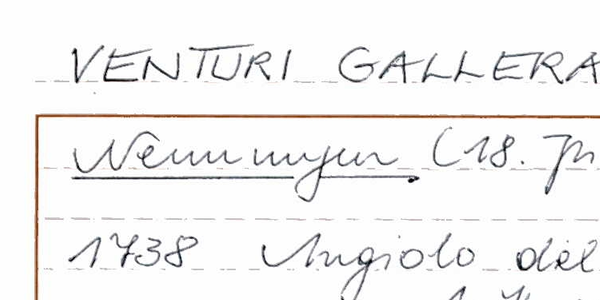 VENTURI GALLERA
Nennungen (18. Jh
1738 Angiolo del